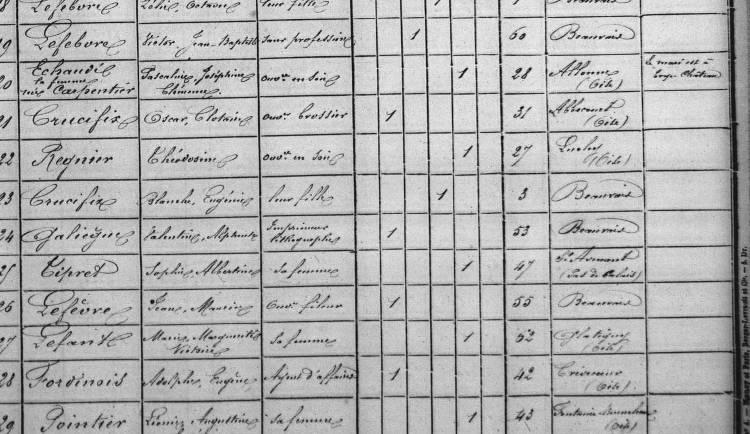 18 Lefebvre leur fille Beauvais
19 Lefebvre Victor Jean-Baptiste sans profession 1 60 Beauvais
20 Echaudé la femme née Carpentier Joséphine ouvre en soie 1 28 Allonne (Oise) Le mari est à
21 Crucifix Oscar, Clotaire ouvr brossier 1 31 Abbecourt (Oise)
22 Regnier Théodosine ouvre en soie 1 27 (Oise)
23 Crucifix Blanche, Eugénie leur fille 1 3 Beauvais
24 Galiègue Valentin, Alphonse Imprimeur lithographe 1 53 Beauvais
25 Tipret Sophie Albertine sa femme 1 47 St Amand (Pas de Calais)
26 Lefèvre Jean, Martin Ouvr fileur 1 55 Beauvais
27 Marie, Marguerite Victoire sa femme 1 52 Glatigny (Oise)
28 Fordinois Adolphe, Eugène Agent d'affaires 1 42 Crèvecœur (Oise)
29 Pointier Augustine sa femme 1 43 Fontaine (Oise)